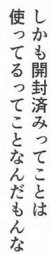 しかも開封済みってことは
使ってるってことなんだもんな